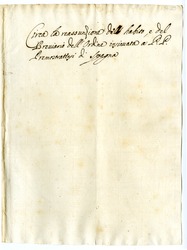 Circa la reassunzione dell' habito e del
Breviario dell' Ordine insinuata a P.P.
Premostratesi di Spagna